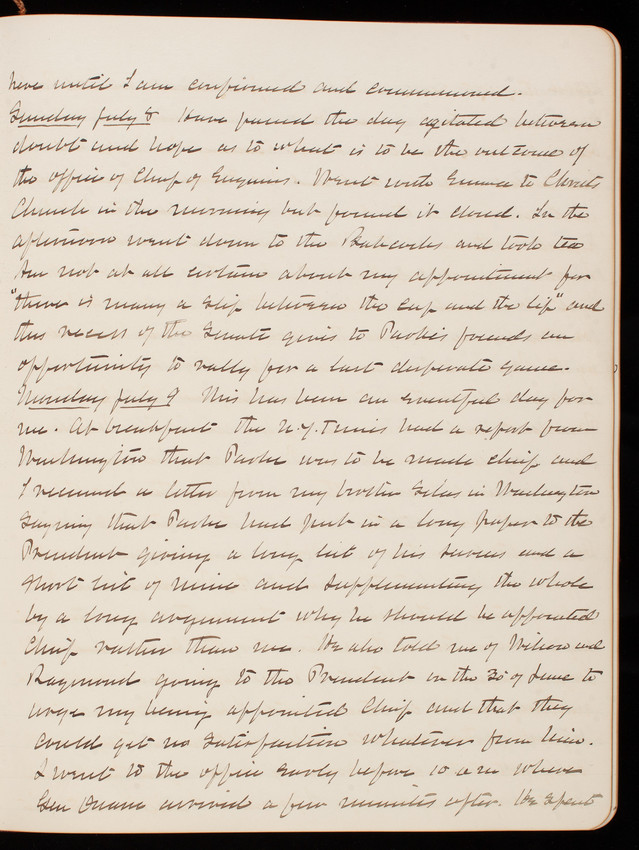 here until I am confirmed and commissioned.
Sunday July 8 Have passed the day agitated between
doubt and hope as to what is to be the outcome of
the office of Chief of Engineers. Went with Emma to Christs
Church in the morning but found it closed. In the
afternoon went down to the Babcocks and took tea
Am not at all certain about my appointment for
"there is many a slip between the cup and the lip" and
this recess of the Senate gives to Parkes friends an
opportunity to rally for a last desperate game.
Monday July 9 This has been an eventful day for
me. At breakfast the N.Y. Times had a report from
Washington that Parke was to be made chief and
I received a letter from my brother Silas in Washington
saying that Parke had put in a long paper to the
President giving a long list of his services and a
short list of mine and supplementing the whole
by a long argument why he should be appointed
Chief rather than me. He also told me of Wilson and
Raymond going to the President on the 30 of June to
urge my being appointed Chief and that they
could get no satisfaction whatever from him.
I went to the office early before 10 am where
Gen Duane arrived a few minutes after. He spent